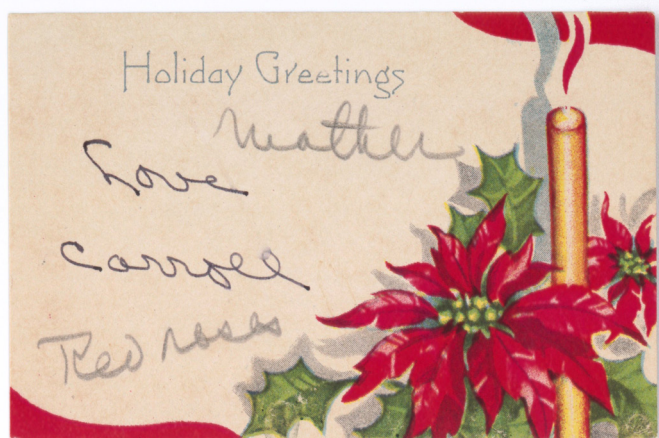 Holiday Greetings
Mother
Love
Carroll
Red roses